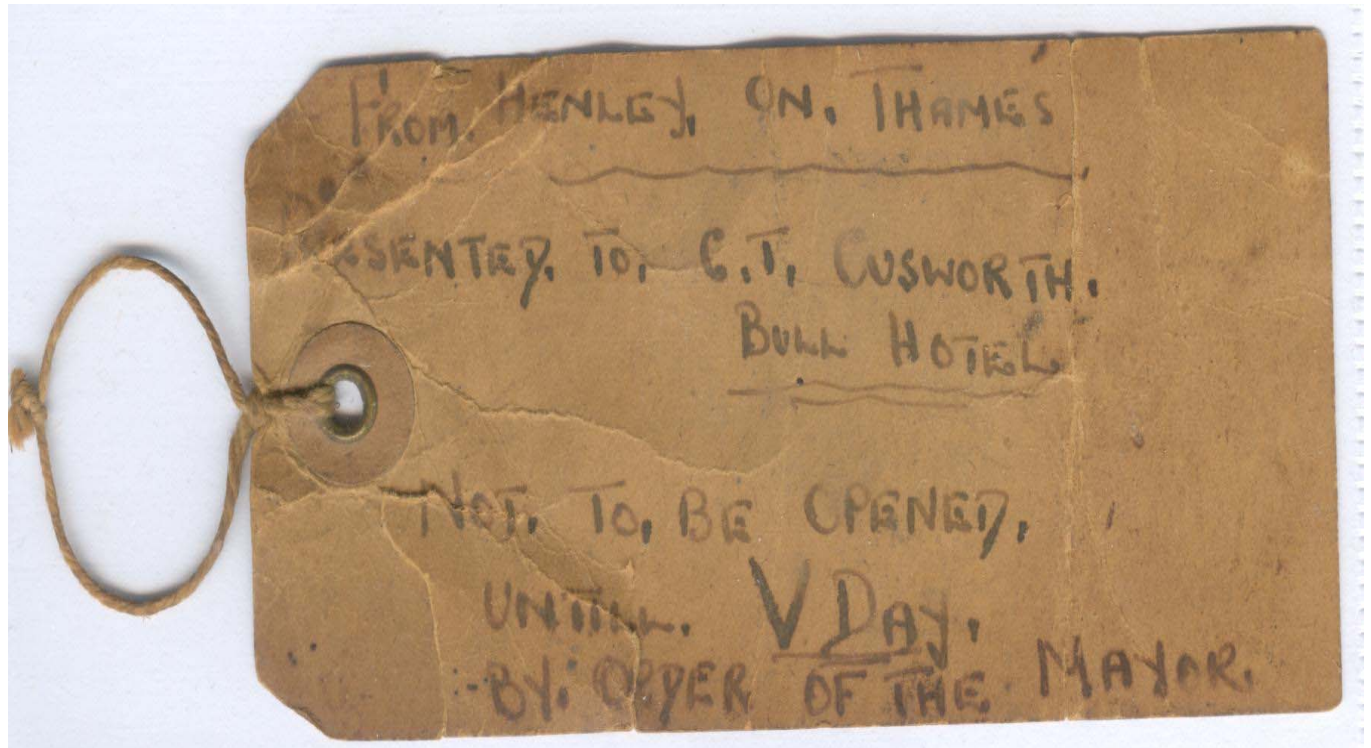 FROM. HENLEY, ON, THAMES
PRESENTED, TO, C.T. CUSWORTH.
BULL HOTEL
NOT, TO, BE OPENED,
UNTILL. V DAY.
BY. ORDER OF THE MAYOR.